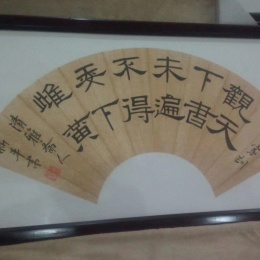 觀天
下書
未遍
不得
妄下
雌黃